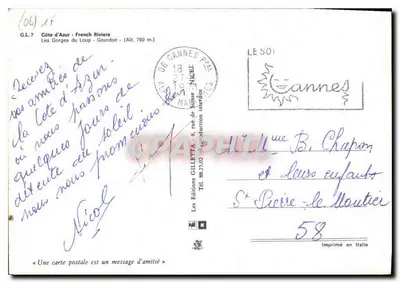 (06) 17
G.L. 7 Côte d'Azur - French Riviera
Les Gorges du Loup - Gourdon - (Alt. 760 m.)
Recevez
nos amitiés de
la Côte d'Azur
où nous passons
quelques jours de
détente au soleil.
nous nous promenons
Nicol
« Une carte postale est un message d'amitié »
Les Editions GILLETTA - 4, rue de Suisse - NICE
Tél. 88.25.02 - Reproduction interdite
06 CANNES PPAL
18
LE SOLEIL
Cannes
M. Mme B. Chapon
et leurs enfants
St Pierre-le-Moutier
58
Imprimé en Italie